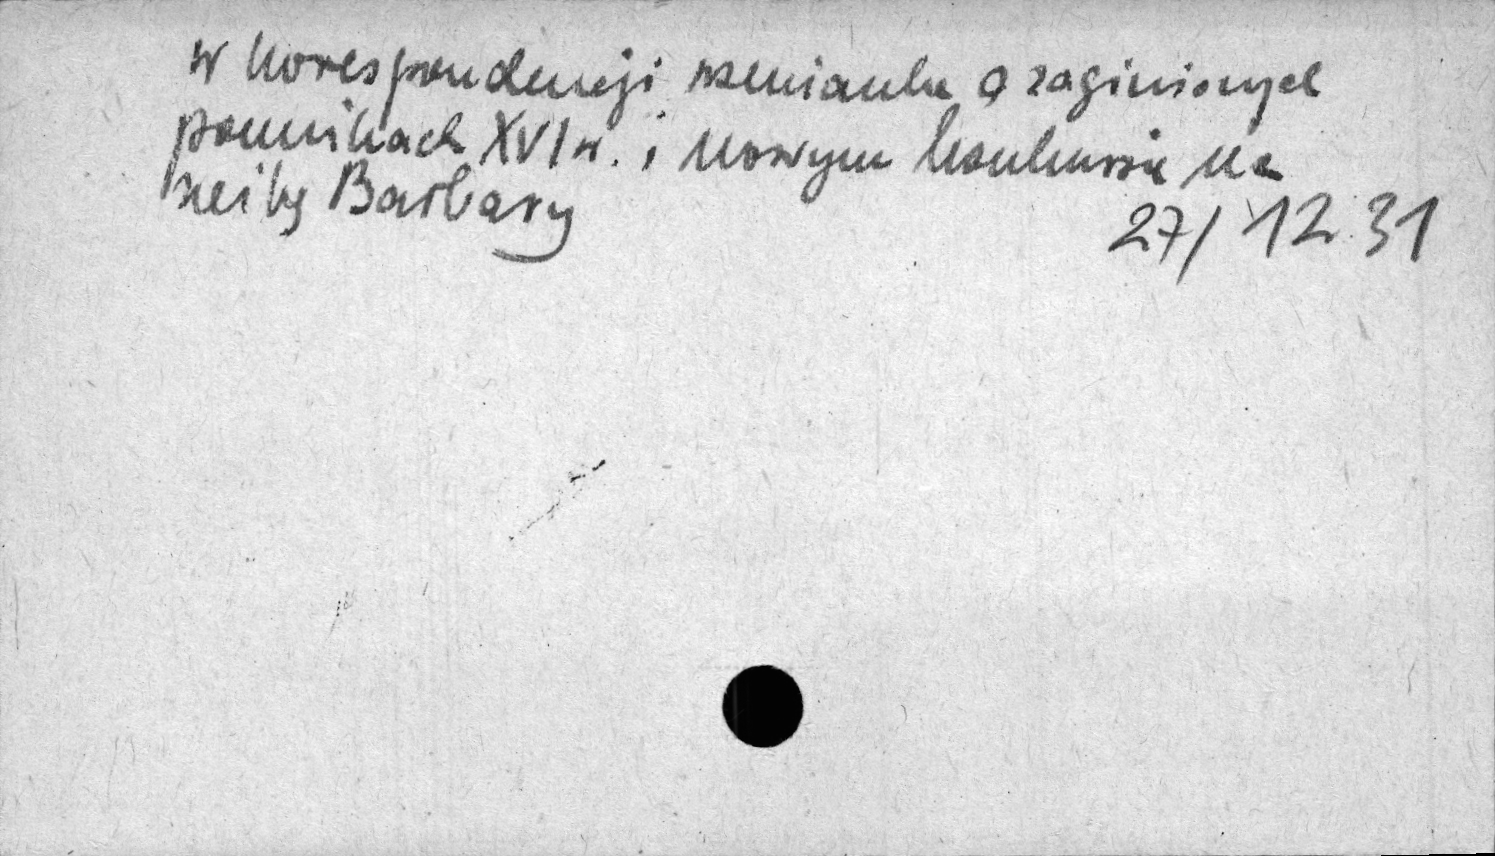 w korespondencji wzmianka o zaginionych
pomnikach XVI w. i nowym konkursie na
rzeźbę Barbary
27/12 31